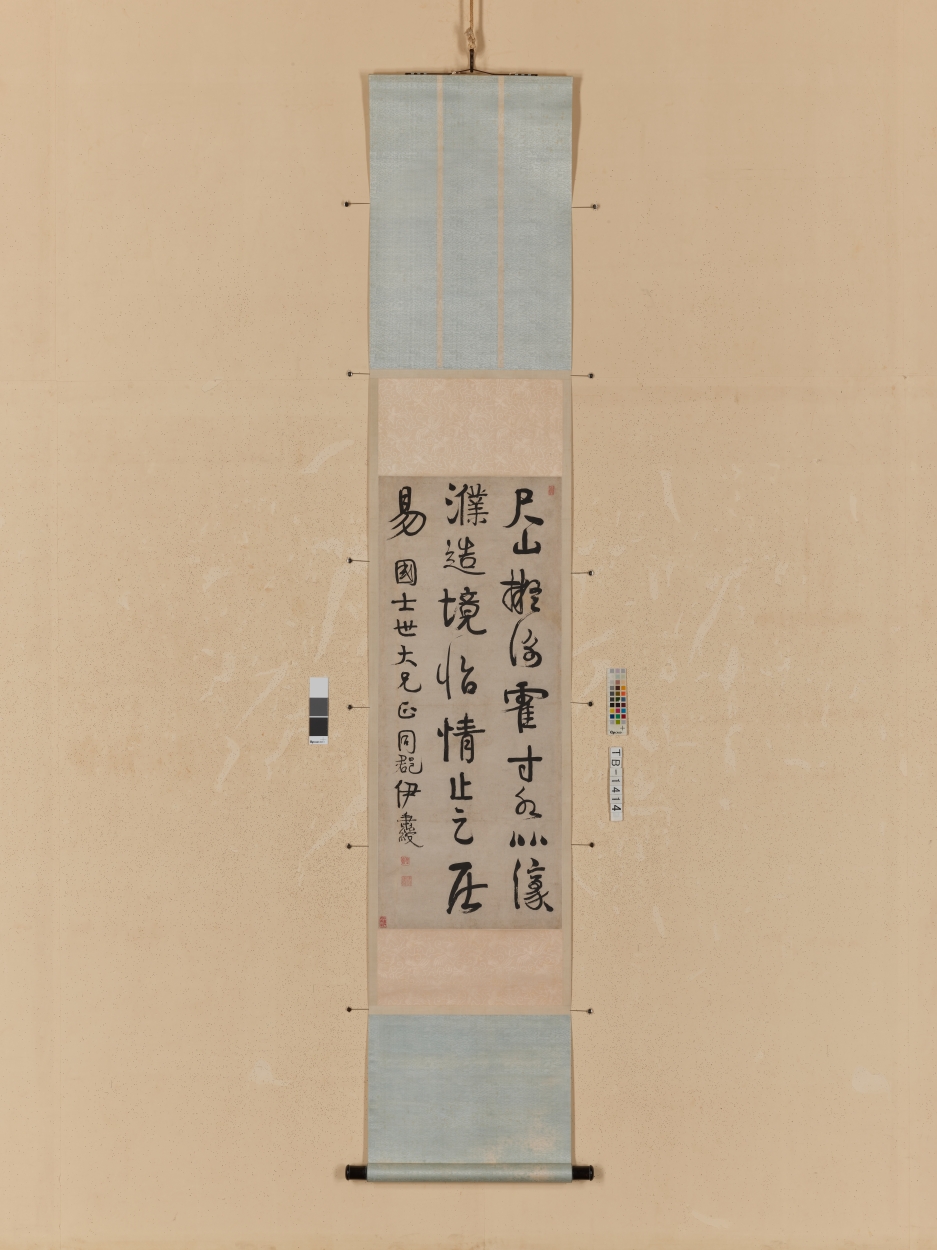 尺山擬衡霍寸水以濠
濮造境怡情止之居
易 國士世大兄正同郡伊秉綬
TB-1414